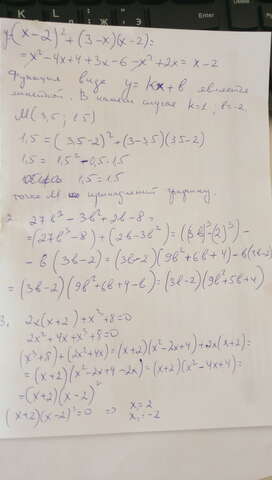 y=(x-2)²+(3-x)(x-2)=
=x²-4x+4+3x-6-x²+2x=x-2
Функция вида y=kx+b является
линейной. В нашем случае k=1, b=-2.
M(3,5; 1,5)
1,5=(3,5-2)²+(3-3,5)(3,5-2)
1,5=1,5²-0,5·1,5
1,5=1,5
точка M принадлежит графику.
2. 27b³-3b²+2b-8=
=(27b³-8)+(2b-3b²)=((3b)³-(2)³)-
-b(3b-2)=(3b-2)(9b²+6b+4)-b(3b-2)
=(3b-2)(9b²+6b+4-b)=(3b-2)(9b²+5b+4)
3. 2x(x+2)+x³+8=0
2x²+4x+x³+8=0
(x³+8)+(2x²+4x)=(x+2)(x²-2x+4)+2x(x+2)=
=(x+2)(x²-2x+4-2x)=(x+2)(x²-4x+4)=
=(x+2)(x-2)²
(x+2)(x-2)²=0 => x=2
x=-2